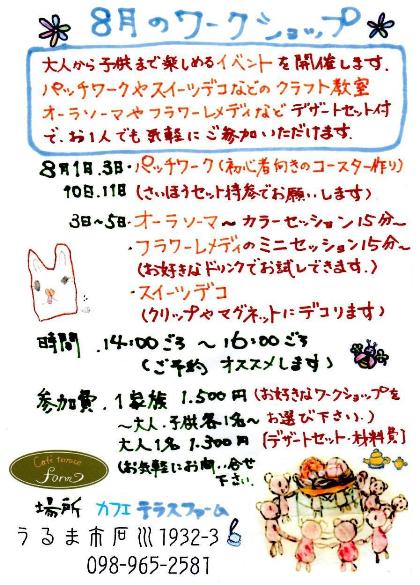 8月のワークショップ
大人から子供まで楽しめるイベントを開催します.
パッチワークやスイーツデコなどのクラフト教室
オーラソーマやフラワーレメディなどデザートセット付
で、お1人でも気軽にご参加いただけます.
8月1日.3日・パッチワーク(初心者向きのコースター作り)
10日.11日 (さいほうセット持参でお願いします)
3日〜5日・オーラソーマ〜カラーセッション15分〜
・フラワーレメディのミニセッション15分〜
(お好きなドリンクでお試しできます.)
・スイーツデコ
(クリップやマグネットにデコります)
時間 .14:00ごろ 〜 16:00ごろ
(ご予約 オススメします)
参加費.1家族 1.500円(お好きなワークショップを
〜大人・子供各1名〜 お選び下さい.)
大人1名 1.300円 [デザートセット・材料費]
(お気軽にお問い合せ
下さい.
Cafe terrace
farm
場所 カフェテラスファーム
うるま市石川1932-3
098-965-2581